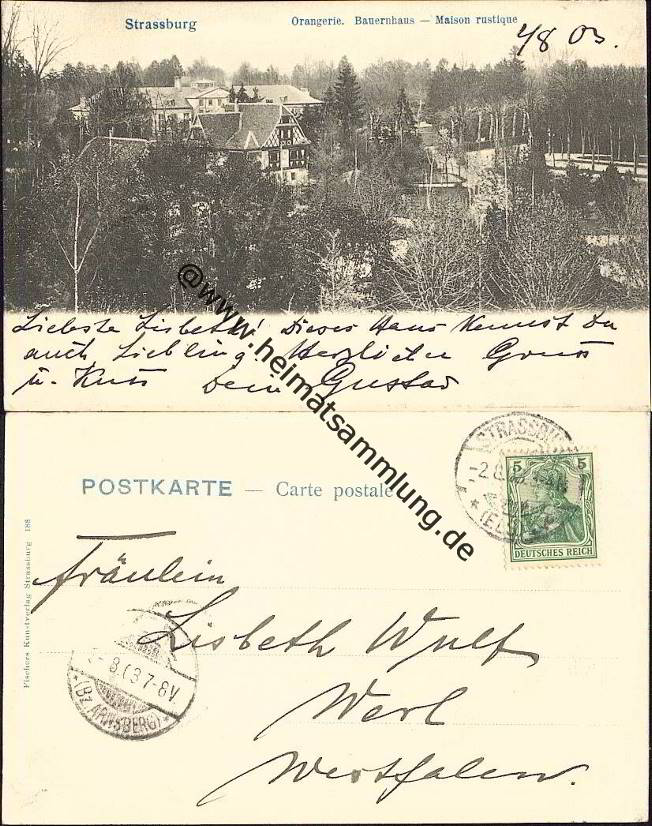 Strassburg
Orangerie. Bauernhaus — Maison rustique
4/8 03.
Liebste Lisbeth! Dieses Haus kennst Du
auch Liebling. Herzlichen Gruss
u. Kuss Dein Gustav
@www.heimatsammlung.de
POSTKARTE — Carte postale
STRASSBURG
-2.8.
(ELS
5 5
DEUTSCHES REICH
Fräulein
Lisbeth Wulf
Werl
Westfalen.
8.03 7-8V.
*(Bz. ARNSBERG)*
Fischers Kunstverlag Strassburg 188